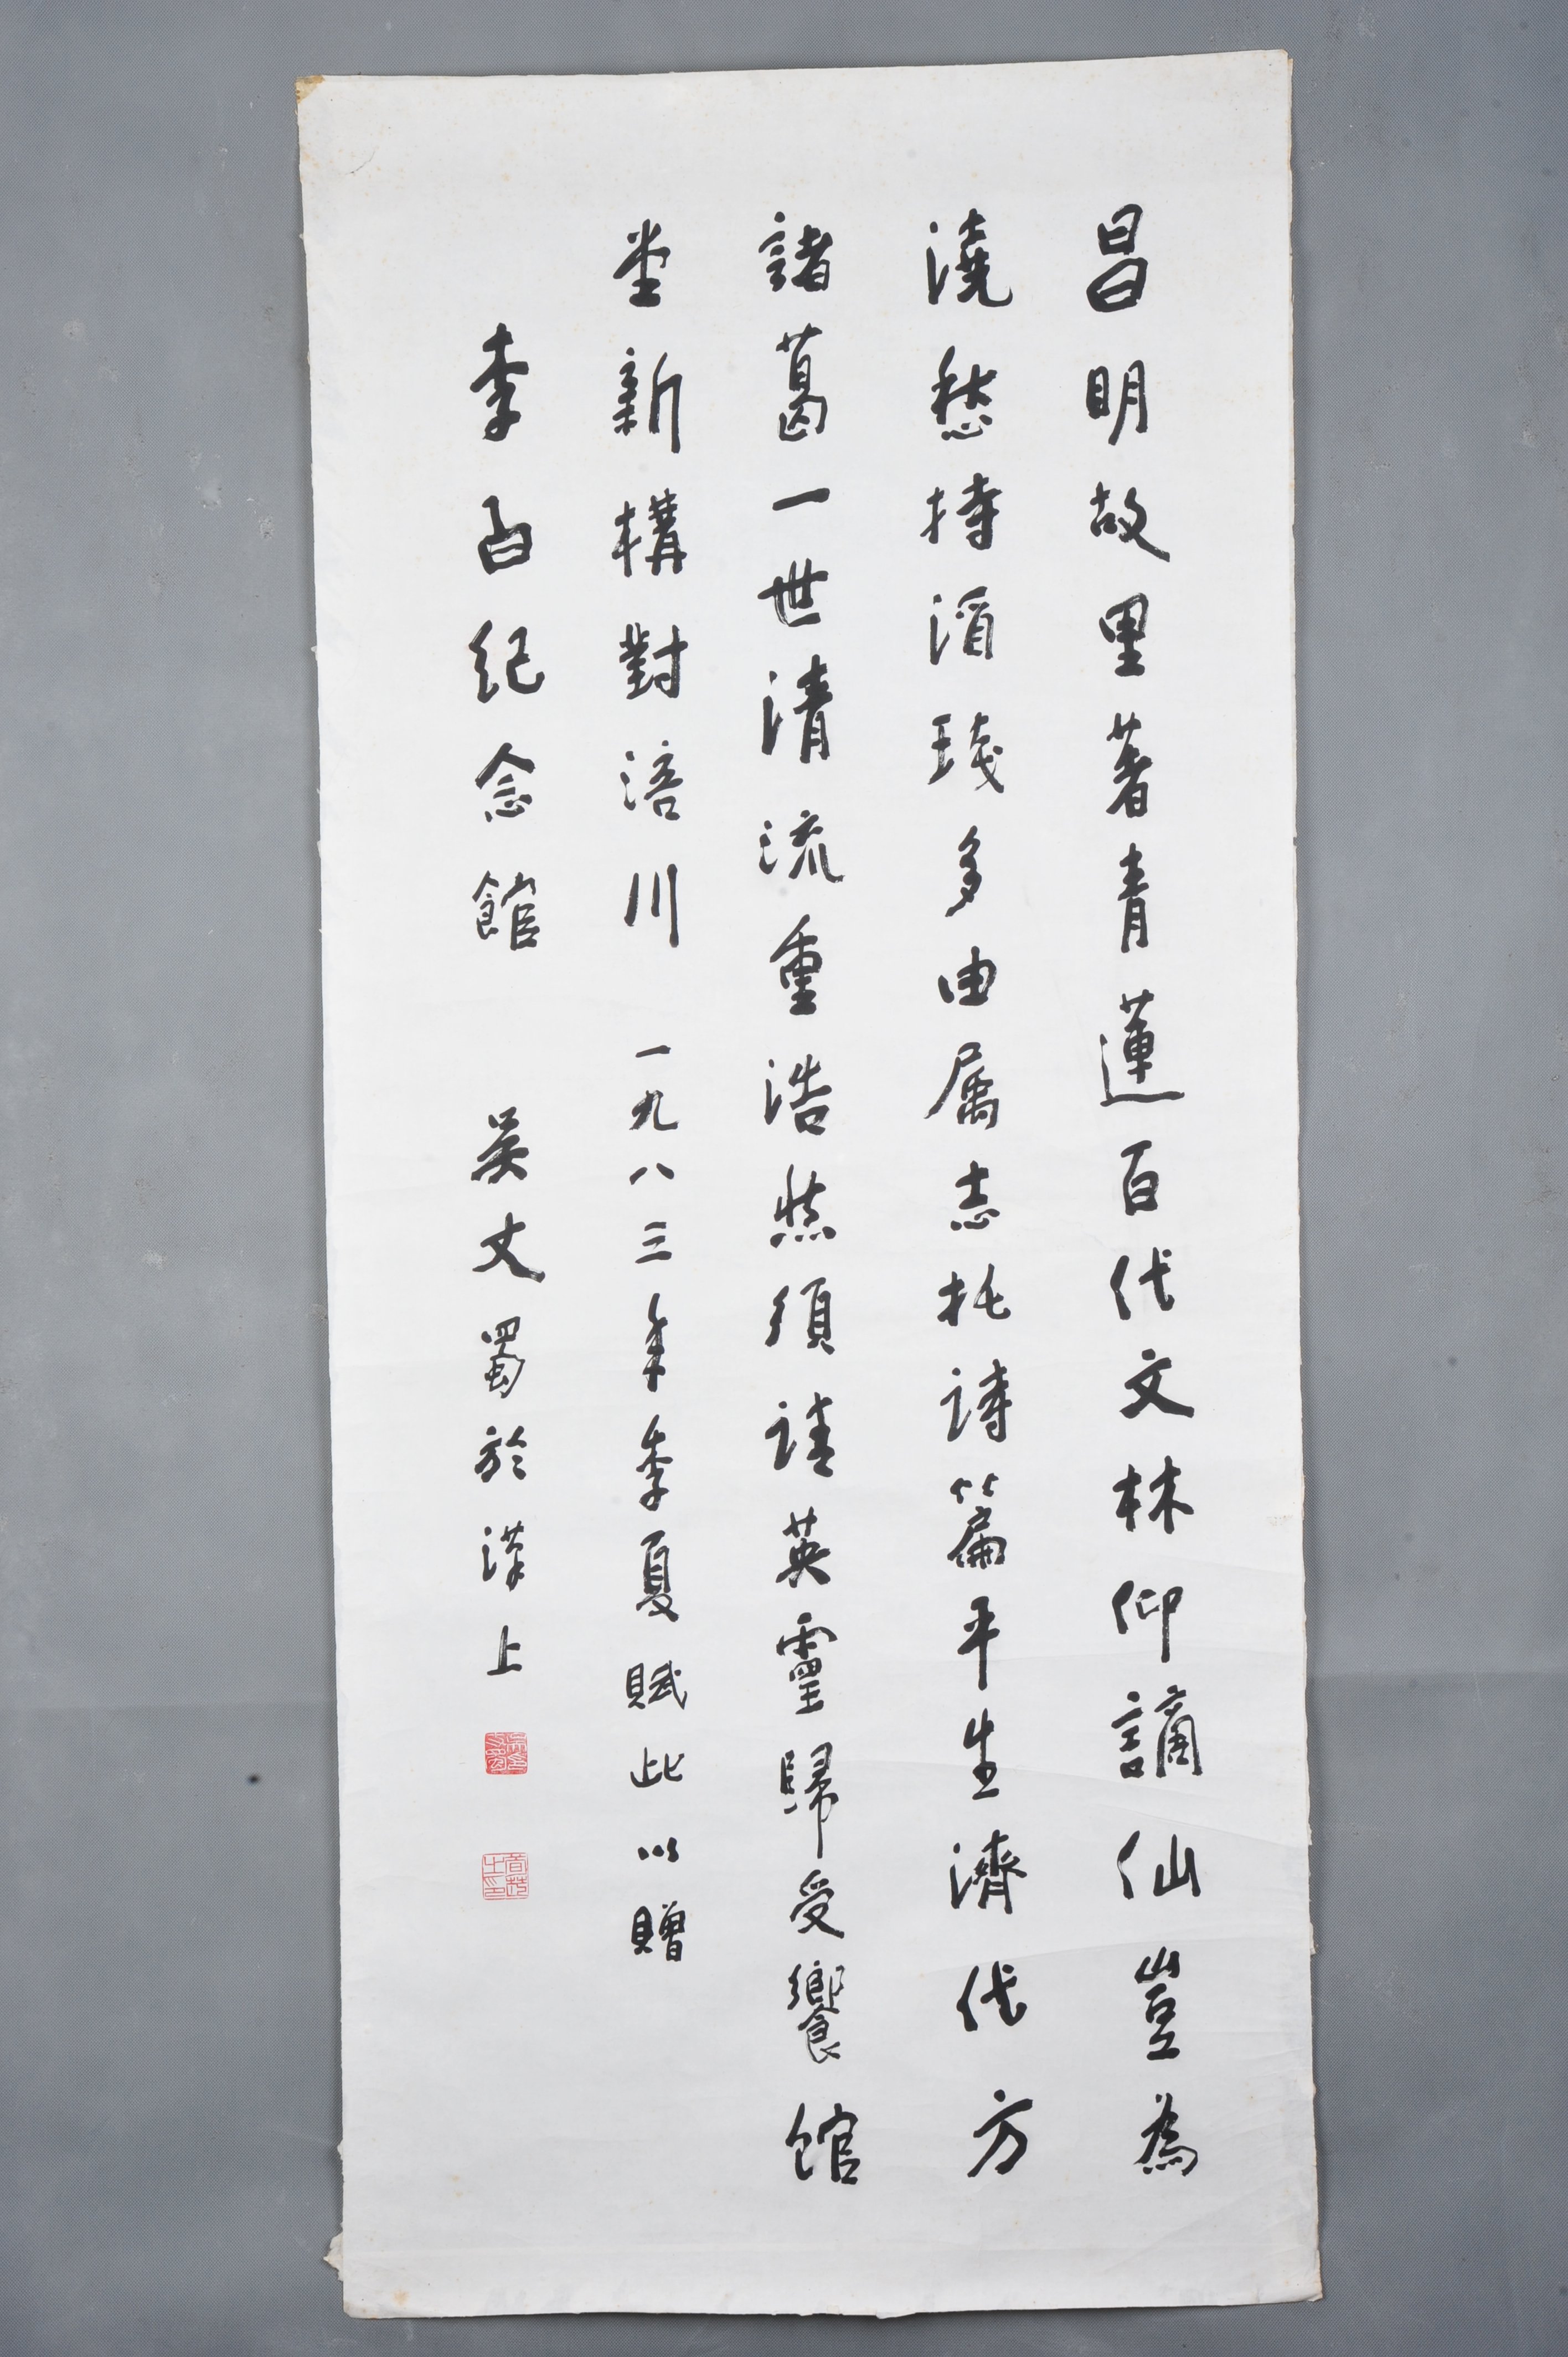 昌明故里著青蓮百代文林仰謫仙豈為
澆愁持酒琖多由属志托詩篇平生濟代方
諸葛一世清流重浩然須請英靈歸受饗館
堂新構對涪川 一九八三年季夏賦此以贈
李白紀念館 吴丈蜀於漢上